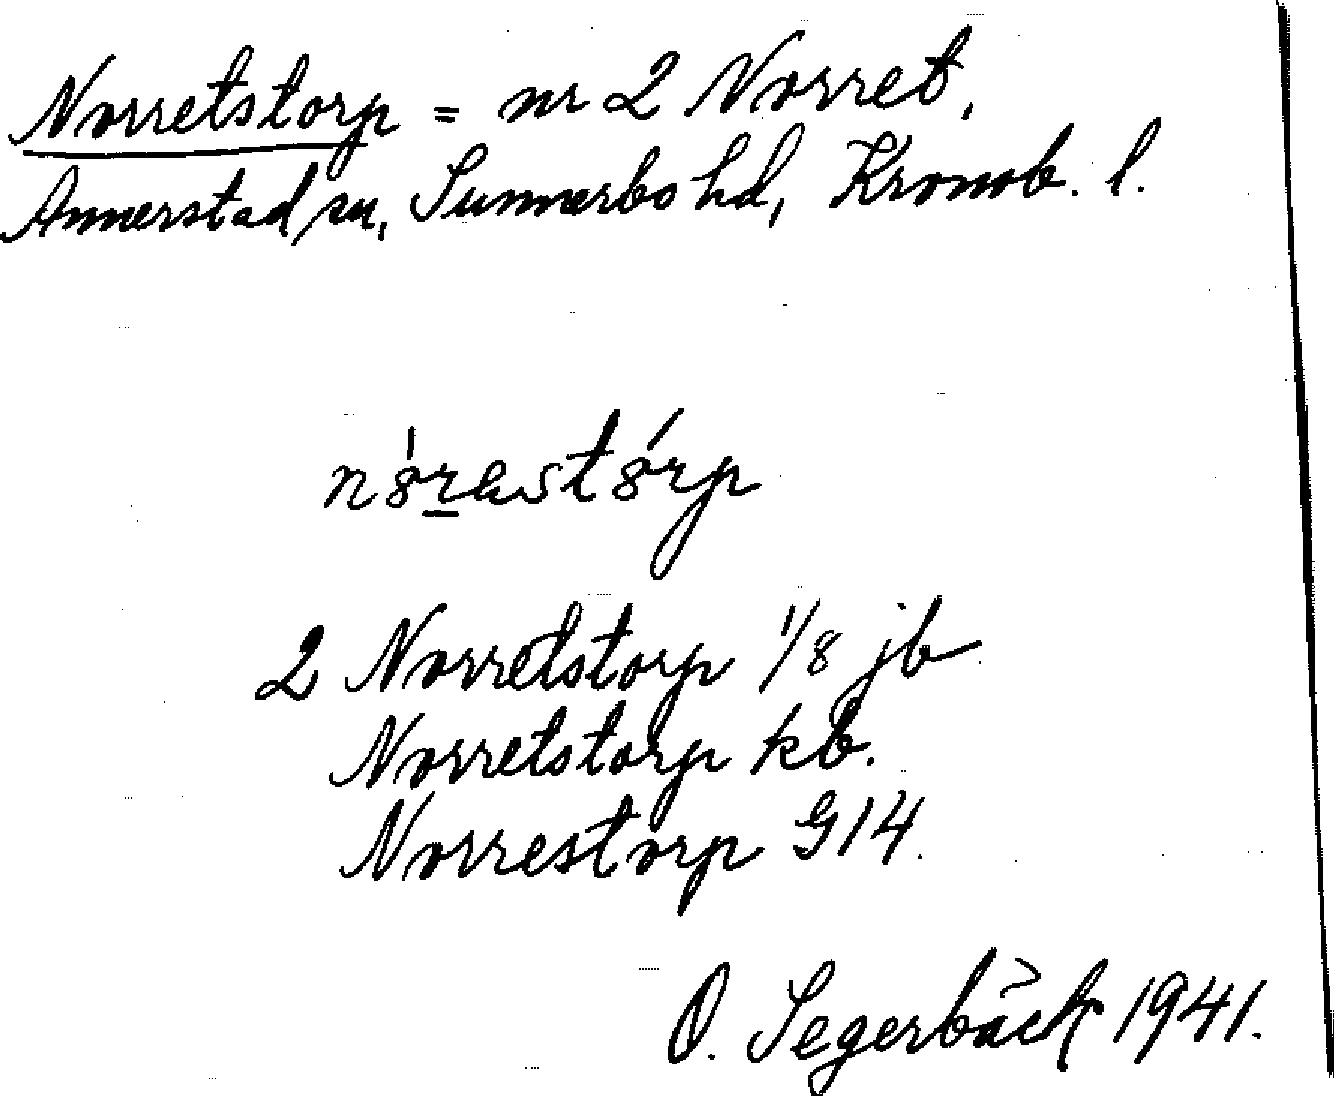 Norretstorp = nr 2 Norret,
Annerstad sn, Sunnerbo hd, Kronob. l.
2 Norretstorp 1/8 jb
Norretstorp kb.
Norrestorp G14.
O. Segerbäck 1941.